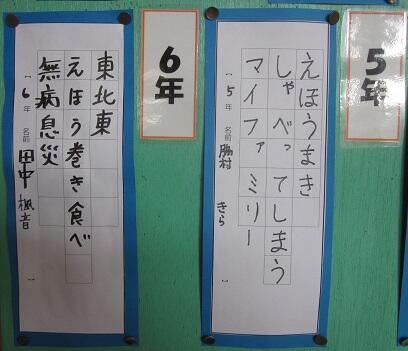 5年
えほうまき
しゃべってしまう
マイファミリー
5年 名前 脇村 きら
6年
東北東
えほう巻き食べ
無病息災
6年 名前 田中 楓音